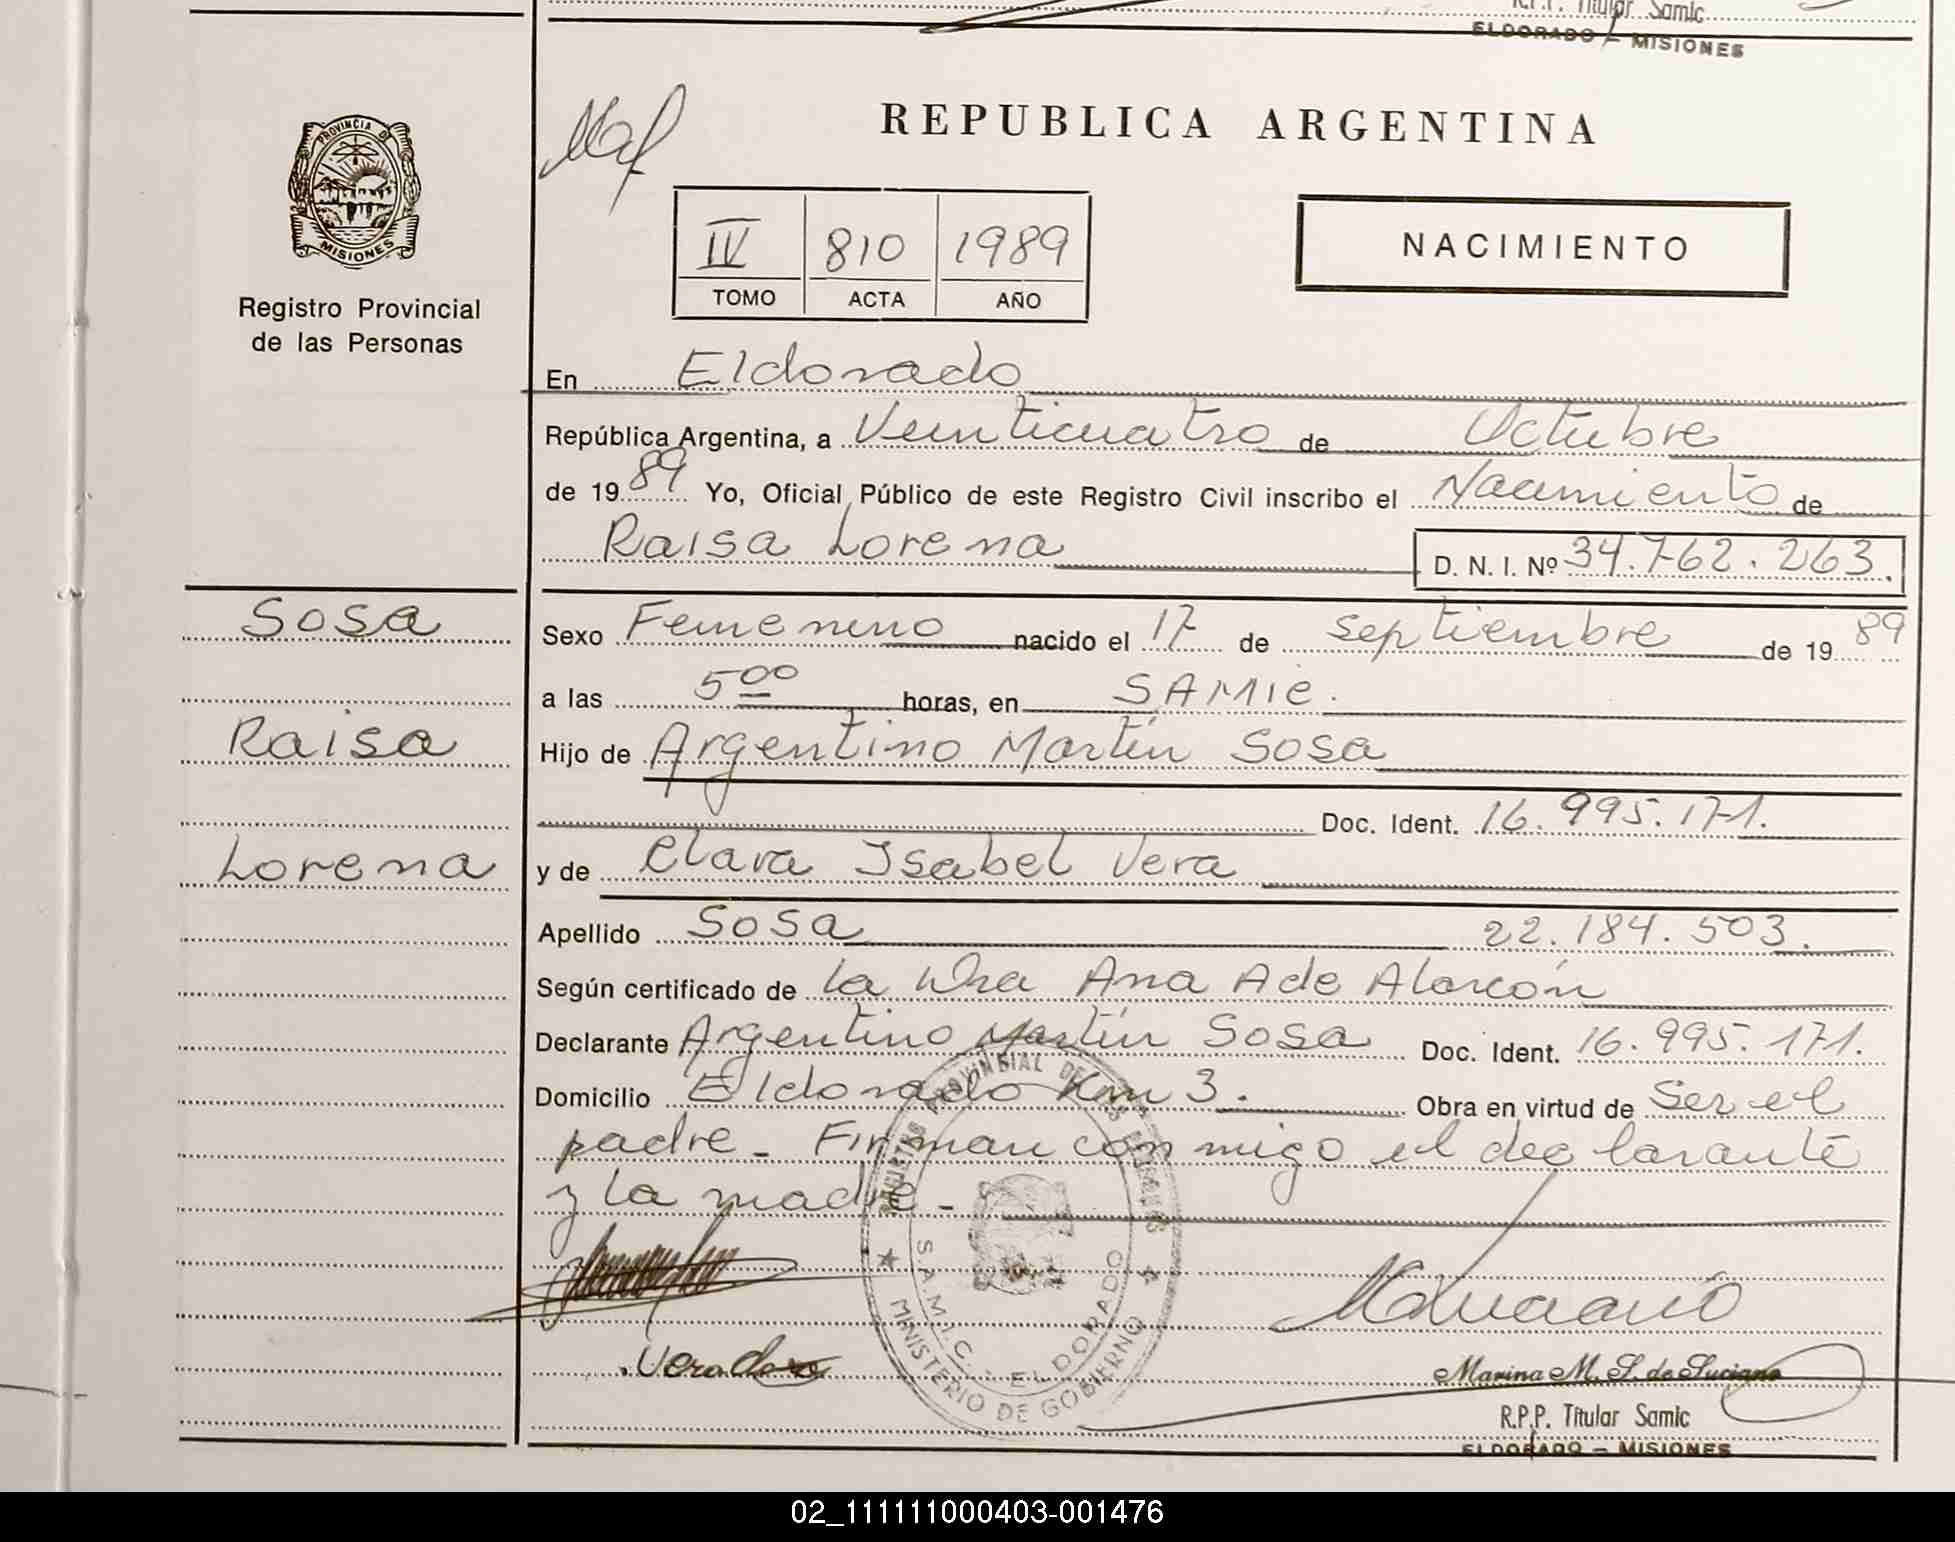 R.P.P. Titular Samic
ELDORADO - MISIONES
PROVINCIA DE
MISIONES
Registro Provincial
de las Personas
REPUBLICA ARGENTINA
IV 810 1989
TOMO ACTA AÑO
NACIMIENTO
En Eldorado
República Argentina, a Veinticuatro de Octubre
de 1989 Yo, Oficial Público de este Registro Civil inscribo el Nacimiento de
Raisa Lorena D. N. I. Nº 34.762.263.
Sosa
Raisa
Lorena
Sexo Femenino nacido el 17 de septiembre de 1989
a las 5 00 horas, en SAMIC.
Hijo de Argentino Martín Sosa
Doc. Ident. 16.995.171.
y de Clara Isabel Vera
Apellido Sosa 22.184.503.
Según certificado de la Dra Ana A de Alarcón
Declarante Argentino Martín Sosa Doc. Ident. 16.995.171.
Domicilio Eldorado Km 3. Obra en virtud de Ser el
padre - Firman conmigo el declarante
y la madre -
PROVINCIAL DE LAS
S.A.M.I.C. - ELDORADO
MINISTERIO DE GOBIERNO
Vera Clara
Marina M. S. de Luciano
R.P.P. Titular Samic
ELDORADO - MISIONES
02_111111000403-001476